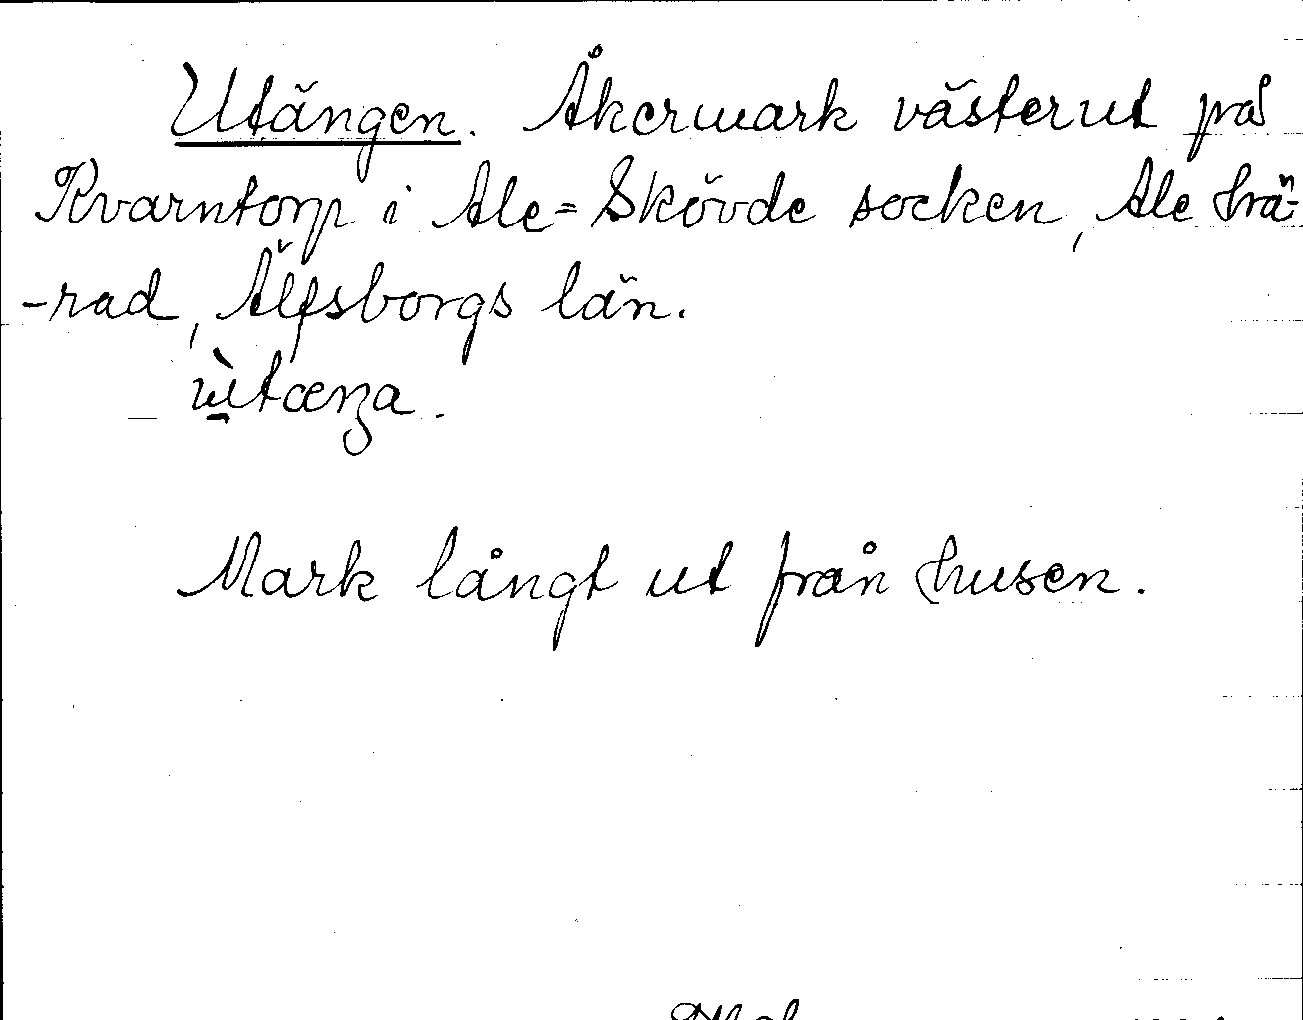 Utängen. Åkermark västerut på
Kvarntorp i Ale=Skövde socken, Ale hä=
-rad, Älfsborgs län.
Mark långt ut från husen.